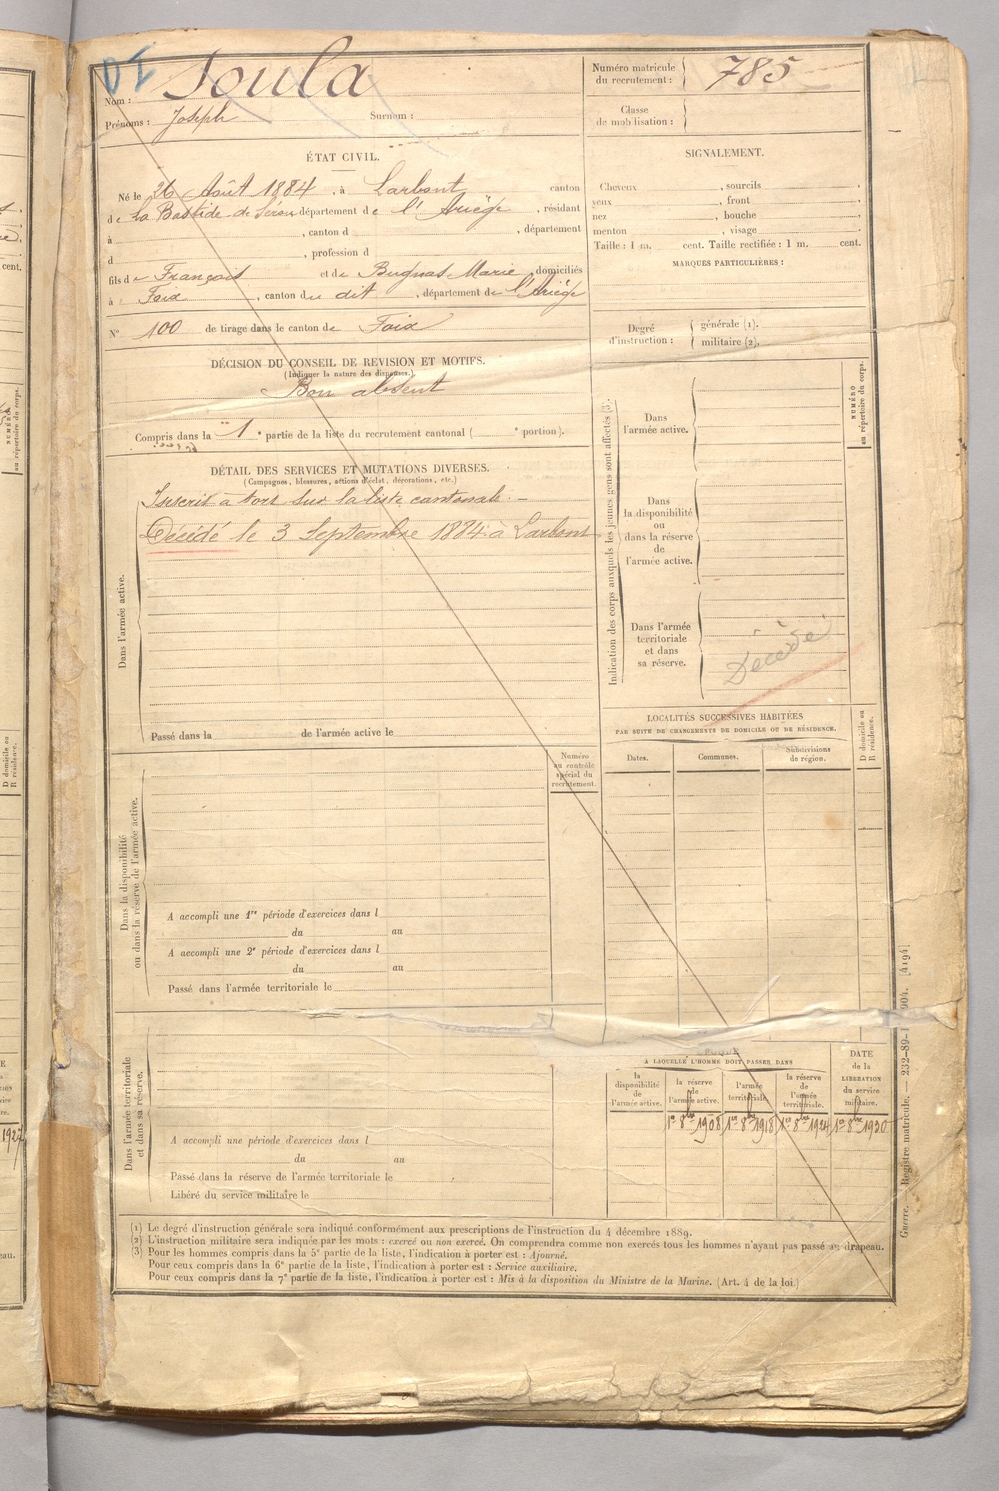 Nom : Soula
Prénoms : Joseph Surnom :
Numéro matricule du recrutement : 785
Classe de mobilisation :
ÉTAT CIVIL.
Né le 26 Août 1884, à Larbont canton
de La Bastide-de-Sérou département de l'Ariège, résidant
à , canton d , département
d , profession d
fils de François et de Bugnas Marie, domiciliés
à Foix, canton du dit, département de l'Ariège
N° 100 de tirage dans le canton de Foix
SIGNALEMENT.
Cheveux , sourcils ,
yeux , front ,
nez , bouche ,
menton , visage .
Taille : 1 m. cent. Taille rectifiée : 1 m. cent.
MARQUES PARTICULIÈRES :
Degré d'instruction : générale (1).
militaire (2).
DÉCISION DU CONSEIL DE REVISION ET MOTIFS.
(Indiquer la nature des dispenses.)
Bon absent
Compris dans la 1e partie de la liste du recrutement cantonal ( e portion).
DÉTAIL DES SERVICES ET MUTATIONS DIVERSES.
(Campagnes, blessures, actions d'éclat, décorations, etc.)
Inscrit à tort sur la liste cantonale. -
Décédé le 3 Septembre 1884 à Larbont
Dans l'armée active.
Passé dans la de l'armée active le
Indication des corps auxquels les jeunes gens sont affectés (3).
NUMÉRO au répertoire du corps.
Dans l'armée active.
Dans la disponibilité ou dans la réserve de l'armée active.
Dans l'armée territoriale et dans sa réserve.
Décédé
LOCALITÉS SUCCESSIVES HABITÉES
PAR SUITE DE CHANGEMENTS DE DOMICILE OU DE RÉSIDENCE.
Dates. Communes. Subdivisions de région.
D domicile ou R résidence.
Numéro au contrôle spécial du recrutement.
Dans la disponibilité ou dans la réserve de l'armée active.
A accompli une 1re période d'exercices dans l
du au
A accompli une 2e période d'exercices dans l
du au
Passé dans l'armée territoriale le
Dans l'armée territoriale et dans sa réserve.
A accompli une période d'exercices dans l
du au
Passé dans la réserve de l'armée territoriale le
Libéré du service militaire le
A LAQUELLE L'HOMME DOIT PASSER DANS
la disponibilité de l'armée active.
la réserve de l'armée active.
l'armée territoriale.
la réserve de l'armée territoriale.
DATE de la LIBÉRATION du service militaire.
1er 8bre 1908 1er 8bre 1918 1er 8bre 1924 1er 8bre 1930
(1) Le degré d'instruction générale sera indiqué conformément aux prescriptions de l'instruction du 4 décembre 1889.
(2) L'instruction militaire sera indiquée par les mots : exercé ou non exercé. On comprendra comme non exercés tous les hommes n'ayant pas passé au drapeau.
(3) Pour les hommes compris dans la 5e partie de la liste, l'indication à porter est : Ajourné.
Pour ceux compris dans la 6e partie de la liste, l'indication à porter est : Service auxiliaire.
Pour ceux compris dans la 7e partie de la liste, l'indication à porter est : Mis à la disposition du Ministre de la Marine. (Art. 4 de la loi.)
Guerre. Registre matricule. — 232-89-1904. [4194]
1927